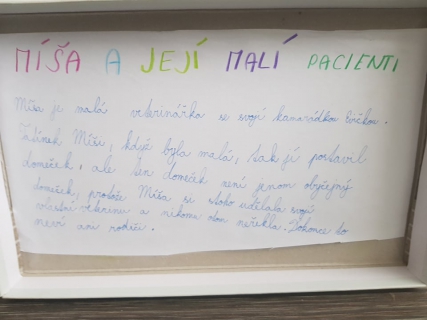 MÍŠA A JEJÍ MALÍ PACIENTI
Míša je malá veterinářka se svojí kamarádkou Evičkou.
Tatínek Míši, když byla malá, tak jí postavil
domeček, ale ten domeček není jenom obyčejný
domeček, protože Míša si z toho udělala svojí
vlastní veterinu a nikomu o tom neřekla. Dokonce to
neví ani rodiče.